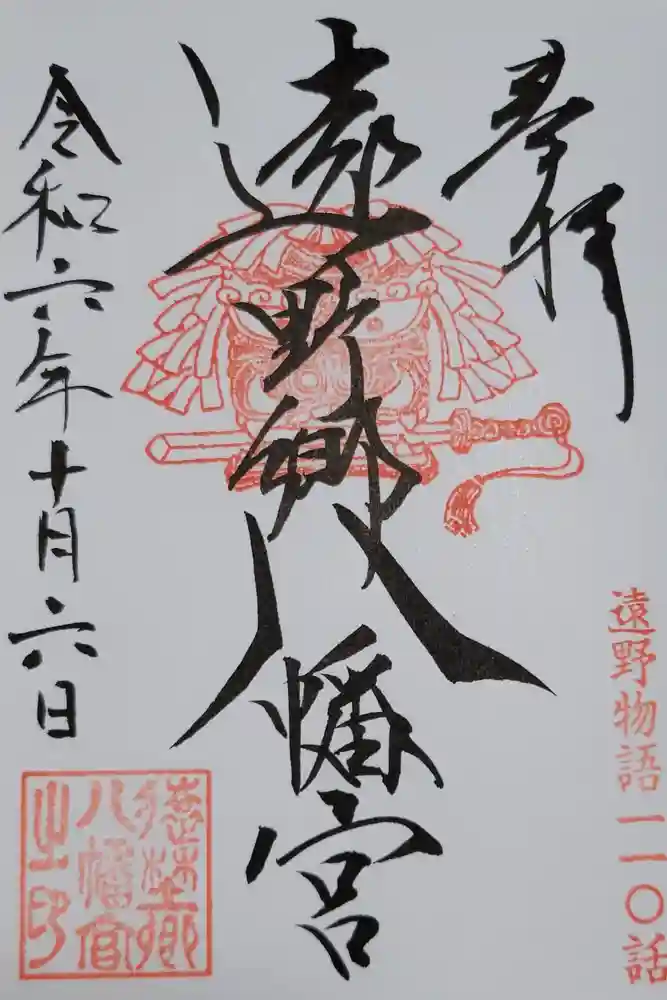 奉拝
遠野物語一一〇話
遠野郷八幡宮
令和六年十月六日
八幡宮
之印